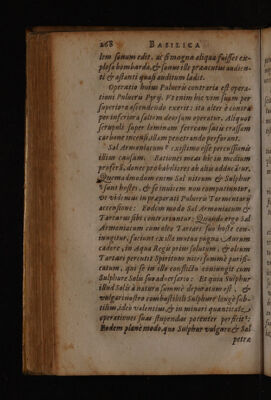 268 BASILICA
lem sonum edit, ac si magna aliqua fuisset ex-
plosa bombarda, & sonus ille præacutus audien-
ti & astanti quasi auditum ladit.
Operatio huius Pulueris contraria est opera-
tioni Pulueris Pyrij. Et enim hic vim suam per
superiora ascendendo exerit: ita alter è contra
per inferiora saltem deorsum operatur. Aliquot
scrupuli super laminam ferream satis crassam
carbone incensi, illam penetrando perforant.
Sal Armoniacum existimo esse percussionis
illius causam. Rationes meas hic in medium
proferā, donec probabiliores ab aliis adducātur.
Quemadmodum enim Sal nitrum & Sulphur
sunt hostes, & se inuicem non compatiuntur,
vt videmus in praparati Pulueris Tormentarij
accensione: Eodem modo Sal Armoniacum &
Tartarus sibi contrariantur: Quando ergo Sal
Armoniacum cum oleo Tartari suo hoste con-
iungitur, faciunt ex illa mutua pugna Aurum
cadere, in Aqua Regis prius solutum, & oleum
Tartari percutit Spiritum nitri summè purifi-
catum, qui se in illo conflictu coniungit cum
Sulphure Solis suo aduersario: Et quia Sulphur
illud Solis à natura summè depuratum est, &
vulgari nostro combustibili Sulphure longè sub-
tilius, ideo valentius, & in minori quantitate,
operationes suas stupendas potenter perficit:
Eodem planè modo, quo Sulphur vulgare & Sal
petra